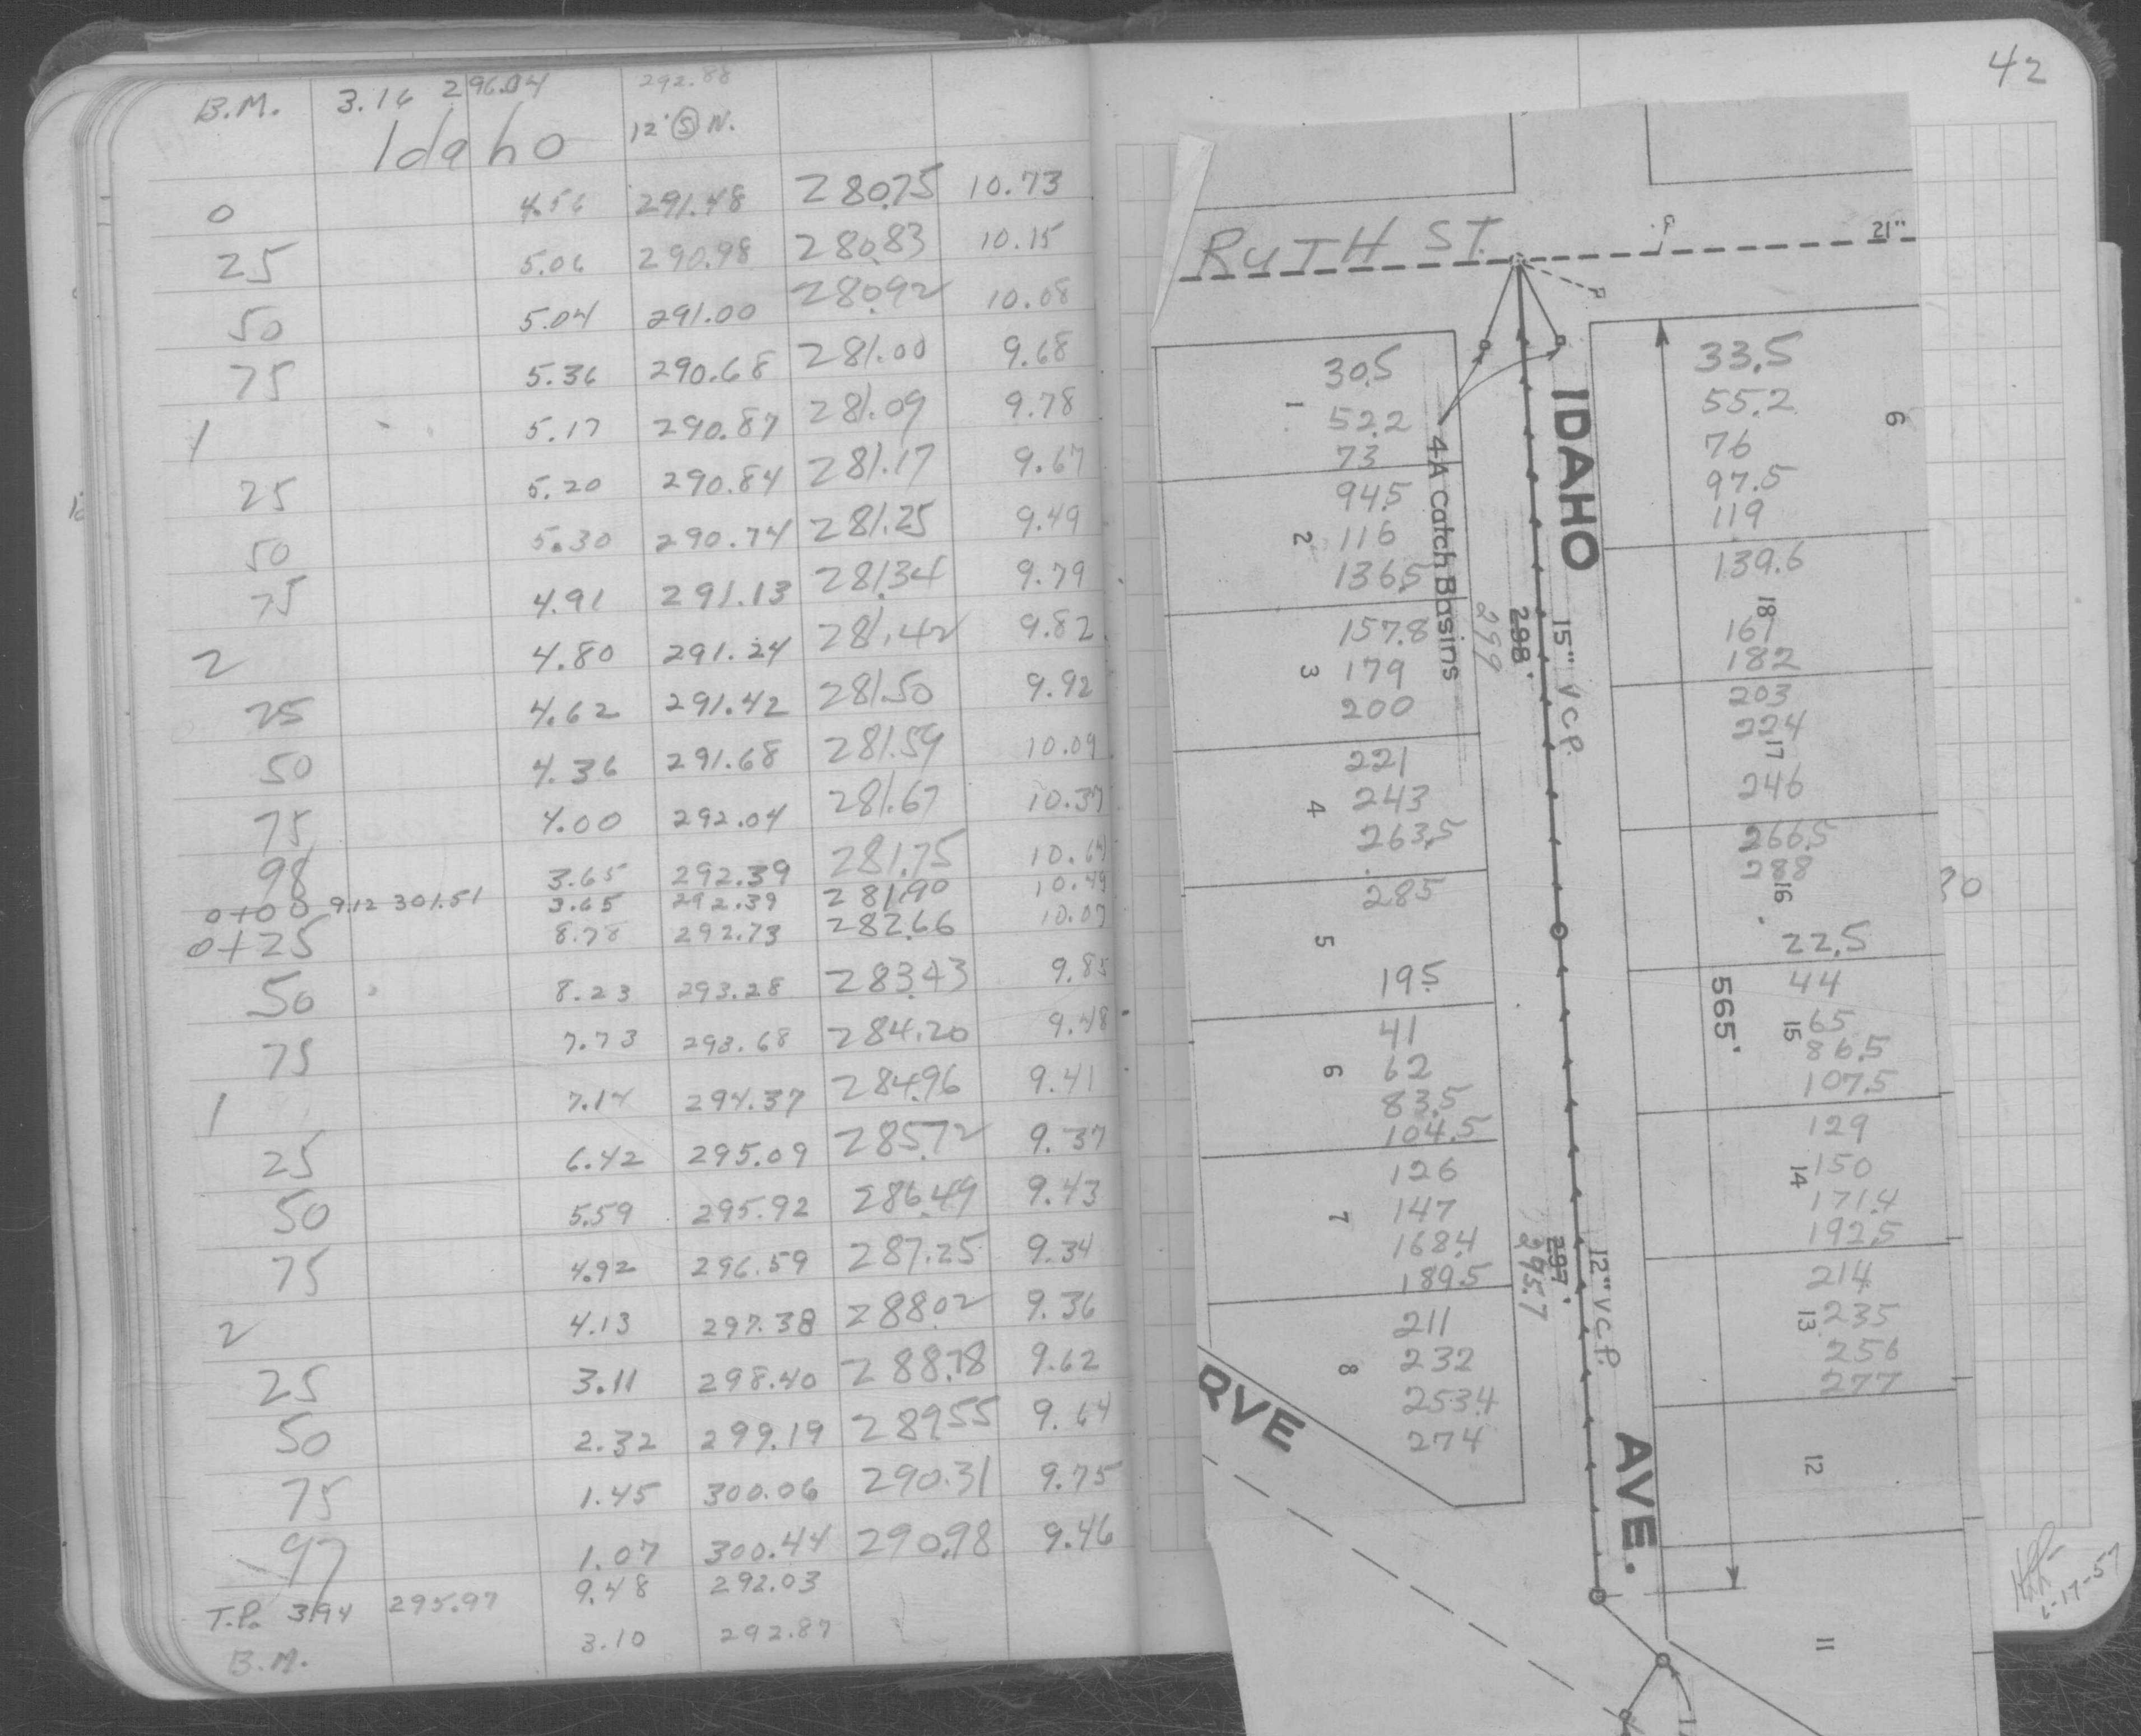 B.M. 3.16 296.04 292.88
Idaho 12' Ⓢ N.
0 4.56 291.48 280.75 10.73
25 5.06 290.98 280.83 10.15
50 5.04 291.00 280.92 10.08
75 5.36 290.68 281.00 9.68
1 5.17 290.87 281.09 9.78
25 5.20 290.84 281.17 9.67
50 5.30 290.74 281.25 9.49
75 4.91 291.13 281.34 9.79
2 4.80 291.24 281.42 9.82
25 4.62 291.42 281.50 9.92
50 4.36 291.68 281.59 10.09
75 4.00 292.04 281.67 10.37
98 3.65 292.39 281.75 10.64
0+00 9.12 301.51 3.65 292.39 281.90 10.49
0+25 8.78 292.73 282.66 10.07
50 8.23 293.28 283.43 9.85
75 7.73 293.68 284.20 9.48
1 7.14 294.37 284.96 9.41
25 6.42 295.09 285.72 9.37
50 5.59 295.92 286.49 9.43
75 4.92 296.59 287.25 9.34
2 4.13 297.38 288.02 9.36
25 3.11 298.40 288.78 9.62
50 2.32 299.19 289.55 9.64
75 1.45 300.06 290.31 9.75
97 1.07 300.44 290.98 9.46
9.48 292.03
T.P. 3.94 295.97
B.M. 3.10 292.87
42
RUTH ST.
21"
30.5
1
52.2
73
94.5
2
116
136.5
157.8
3
179
200
221
4
243
263.5
285
5
19.5
41
6
62
83.5
104.5
126
7
147
168.4
189.5
211
8
232
253.4
274
4A Catch Basins
IDAHO
15" V.C.P.
298'
299
12" V.C.P.
297'
295.7
AVE.
RVE
33.5
55.2
6
76
97.5
119
139.6
18
161
182
203
224
17
246
266.5
288
16
30
22.5
565'
44
65
15
86.5
107.5
129
150
14
171.4
192.5
214
235
13
256
277
12
11
6-17-57